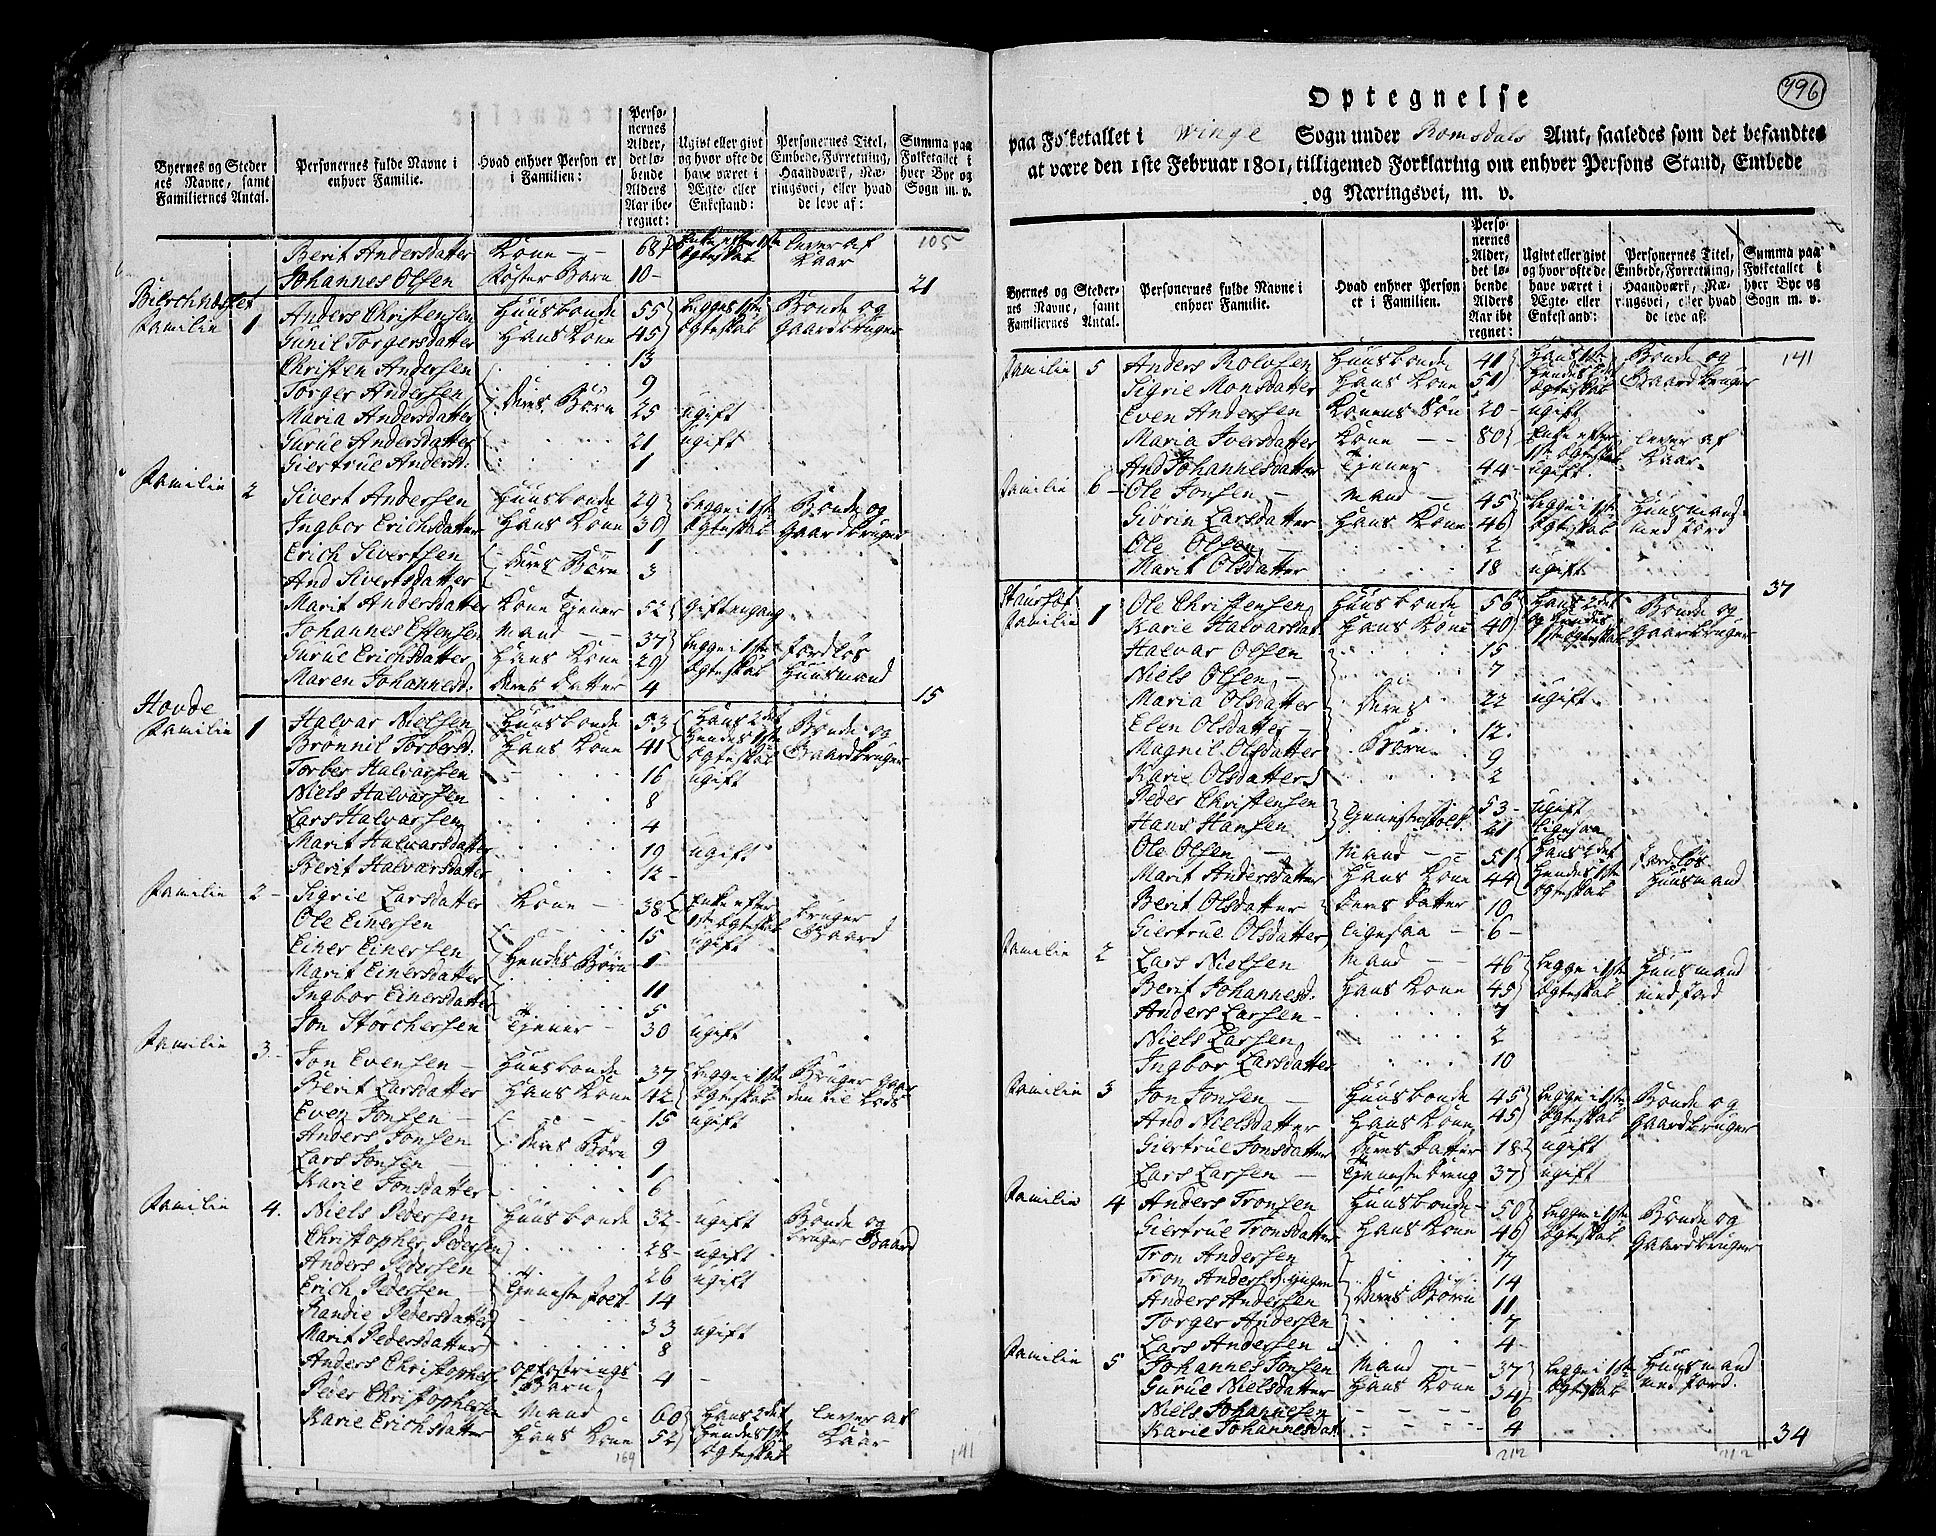 Byernes og Steder
nes Navne, samt
Familiernes Antal.
Personernes fulde Navne i
enhver Familie.
Hvad enhver Person er
i Familien:
Perso-
nernes
Alder,
det lø-
bende
Alders
Aar ibe-
regnet:
Ugivt eller givt
og hvor ofte de
have været i
Ægte- eller
Enkestand:
Personernes Titel,
Embede, Forretning,
Haandværk, Næ-
ringsvei, eller hvad
de leve af:
Summa paa
Folketallet i
hver Bye og
Sogn m. v.
Berit Andersdatter Kone — — 68 Enke efter 1ste Ægteskab lever af Kaar 105
Johannes Olsen Foster Barn 10 - 21
Familie 1 Anders Christensen Huusbonde 55 begge 1ste Ægteskab Bonde og Gaardbruger
Gunil Torgersdatter Hans Kone 45
Christen Andersen 13
Torger Andersen deres Børn 9
Maria Andersdatter 25 ugift
Gurue Andersdatter 21 ugift
Giertrue Andersd: 1
Familie 2 Sivert Andersen Huusbonde 29 begge i 1ste Ægteskab Bonde og Gaardbruger
Ingbor Erichsdatter Hans Kone 30
Erich Sivertsen deres Børn 1
And Sivertsdatter 3
Marit Andersdatter Kone Tjener 52 Gift engang
Johannes Estensen Mand — — 37 begge i 1ste Ægteskab Jordløs Huusmand
Gurue Erichsdatter Hans Kone 29
Maren Johannesd: deres datter 4 15
Hovde
Familie 1 Halvar Nielsen Huusbonde 53 Hans 2det Hendes 1ste Ægteskab Bonde og Gaardbruger
Brønnil Torbersd: Hans Kone 41
Torber Halvarsen 16 ugift
Niels Halvarsen 8
Lars Halvarsen 4
Marit Halvarsdatter 19 ugift
Berit Halvarsdatter 12 -
Familie 2 - Sigrie Larsdatter Kone — 38 Enke efter 1ste Ægteskab bruger Gaard
Ole Einersen 15 ugift
Einer Einersen Hendes Børn 1
Marit Einersdatter 11
Ingbor Einersdatter 5
Jon Størchersen Tjener - 30 ugift
Familie 3 - Jon Evensen — Huusbonde 37 begge i 1ste Ægteskab Bruger Gaar den til Lods
Berit Larsdatter Hans Kone 42
Even Jonsen — 15 ugift
Anders Jonsen deres Børn 9
Lars Jonsen — 1
Karie Jonsdatter 6
Familie 4. Niels Pedersen Huusbonde 32 - ugift Bonde og bruger Gaard
Christopher Pedersen 28 - ugift
Anders Pedersen 26 ugift
Erich Pedersen — Tjeneste folk 14
Randie Pedersdatter 33 ugift
Marit Pedersdatter 8
Anders Christophers. opfostrings Barn 4 -
Peder Christophersen Mand 60 Hans 2det Hendes 1ste Ægteskab lever af Kaar
Karie Erichsdatter Hans Kone 52
169 141
396
Optegnelse
paa Folketallet i Winge Sogn under Romsdals Amt, saaledes som det befandtes
at være den 1ste Februar 1801, tilligemed Forklaring om enhver Persons Stand, Embede
og Næringsvei, m. v.
Byernes og Steder-
nes Navne, samt
Familiernes Antal.
Personernes fulde Navne i
enhver Familie.
Hvad enhver Person
er i Familien.
Perso-
nernes
Alder,
det lø-
bende
Alders
Aar ibe
regnet:
Ugivt eller givt
og hvor ofte de
have været i
Ægte- eller
Enkestand:
Personernes Titel,
Embede, Forretning,
Haandværk, Næ-
ringsvei, eller hvad
de leve af:
Summa paa
Folketallet i
hver Bye og
Sogn m. v.
Familie 5 Anders Rolvsen Huusbonde 41 Hans 1ste Hendes 2det Ægteskab Bonde og Gaardbruger 141
Sigrie Monsdatter Hans Kone 51
Even Andersen Konens Søn 20 - ugift
Maria Iversdatter Kone — — 80 Enke efter 1ste Ægteskab lever af Kaar
And Johannesdatter Tjener 44 - ugift
Familie 6 - Ole Jonsen — Mand — 45 begge i 1ste Ægteskab Huusmand med Jord
Giørin Larsdatter Hans Kone 46
Ole Olsen — 2
Marit Olsdatter 18 ugift 37
Familie 1 Ole Christensen Huusbonde 56 Hans 2det og Hendes 1ste Ægteskab Bonde og Gaardbruger
Karie Halvarsdat. Hans Kone 40
Halvar Olsen 15
Niels Olsen — 7
Maria Olsdatter Deres 22 ugift
Elen Olsdatter 12
Magnil Olsdatter Børn 9
Karie Olsdatter 2
Peder Christensen Tjenestefolk 53 - ugift
Hans Hansen 21 ligesaa
Ole Olsen — Mand — — 51 Hans 2det Hendes 1ste Ægteskab Jordløs Huusmand
Marit Andersdatter Hans Kone 44
Berit Olsdatter deres datter 10
Giertrue Olsdatter ligesaa — 6 -
Familie 2 Lars Nielsen Mand — — 46 begge i 1ste Ægteskab Huusmand med Jord
Berit Johannesd. Hans Kone 45
Anders Larsen - 7
Niels Larsen 2
Ingbor Larsdatter 10
Familie 3 Jon Jonsen — Huusbonde 45 begge i 1ste Ægteskab Bonde og Gaardbruger
And Nielsdatter Hans Kone 45
Giertrue Jonsdatter Deres Datter 18 ugift
Lars Larsen — Tjeneste dreng 37 ugift
Familie 4 Anders Tronsen Huusbonde - 50 begge i 1ste Ægteskab Bonde og Gaardbruger
Giertrue Tronsdatter Hans Kone 46
Tron Andersen 17
Tron Anders: d: yngre 14
Anders Andersen Deres Børn 11
Torger Andersen 7
Lars Andersen 4
Familie 5 Johannes Jonsen Mand — — 37 begge i 1ste Ægteskab Huusmand med Jord.
Gurue Nielsdatter Hans Kone 34
Niels Johannesen 6
Karie Johannesdat. 4 34
212 212